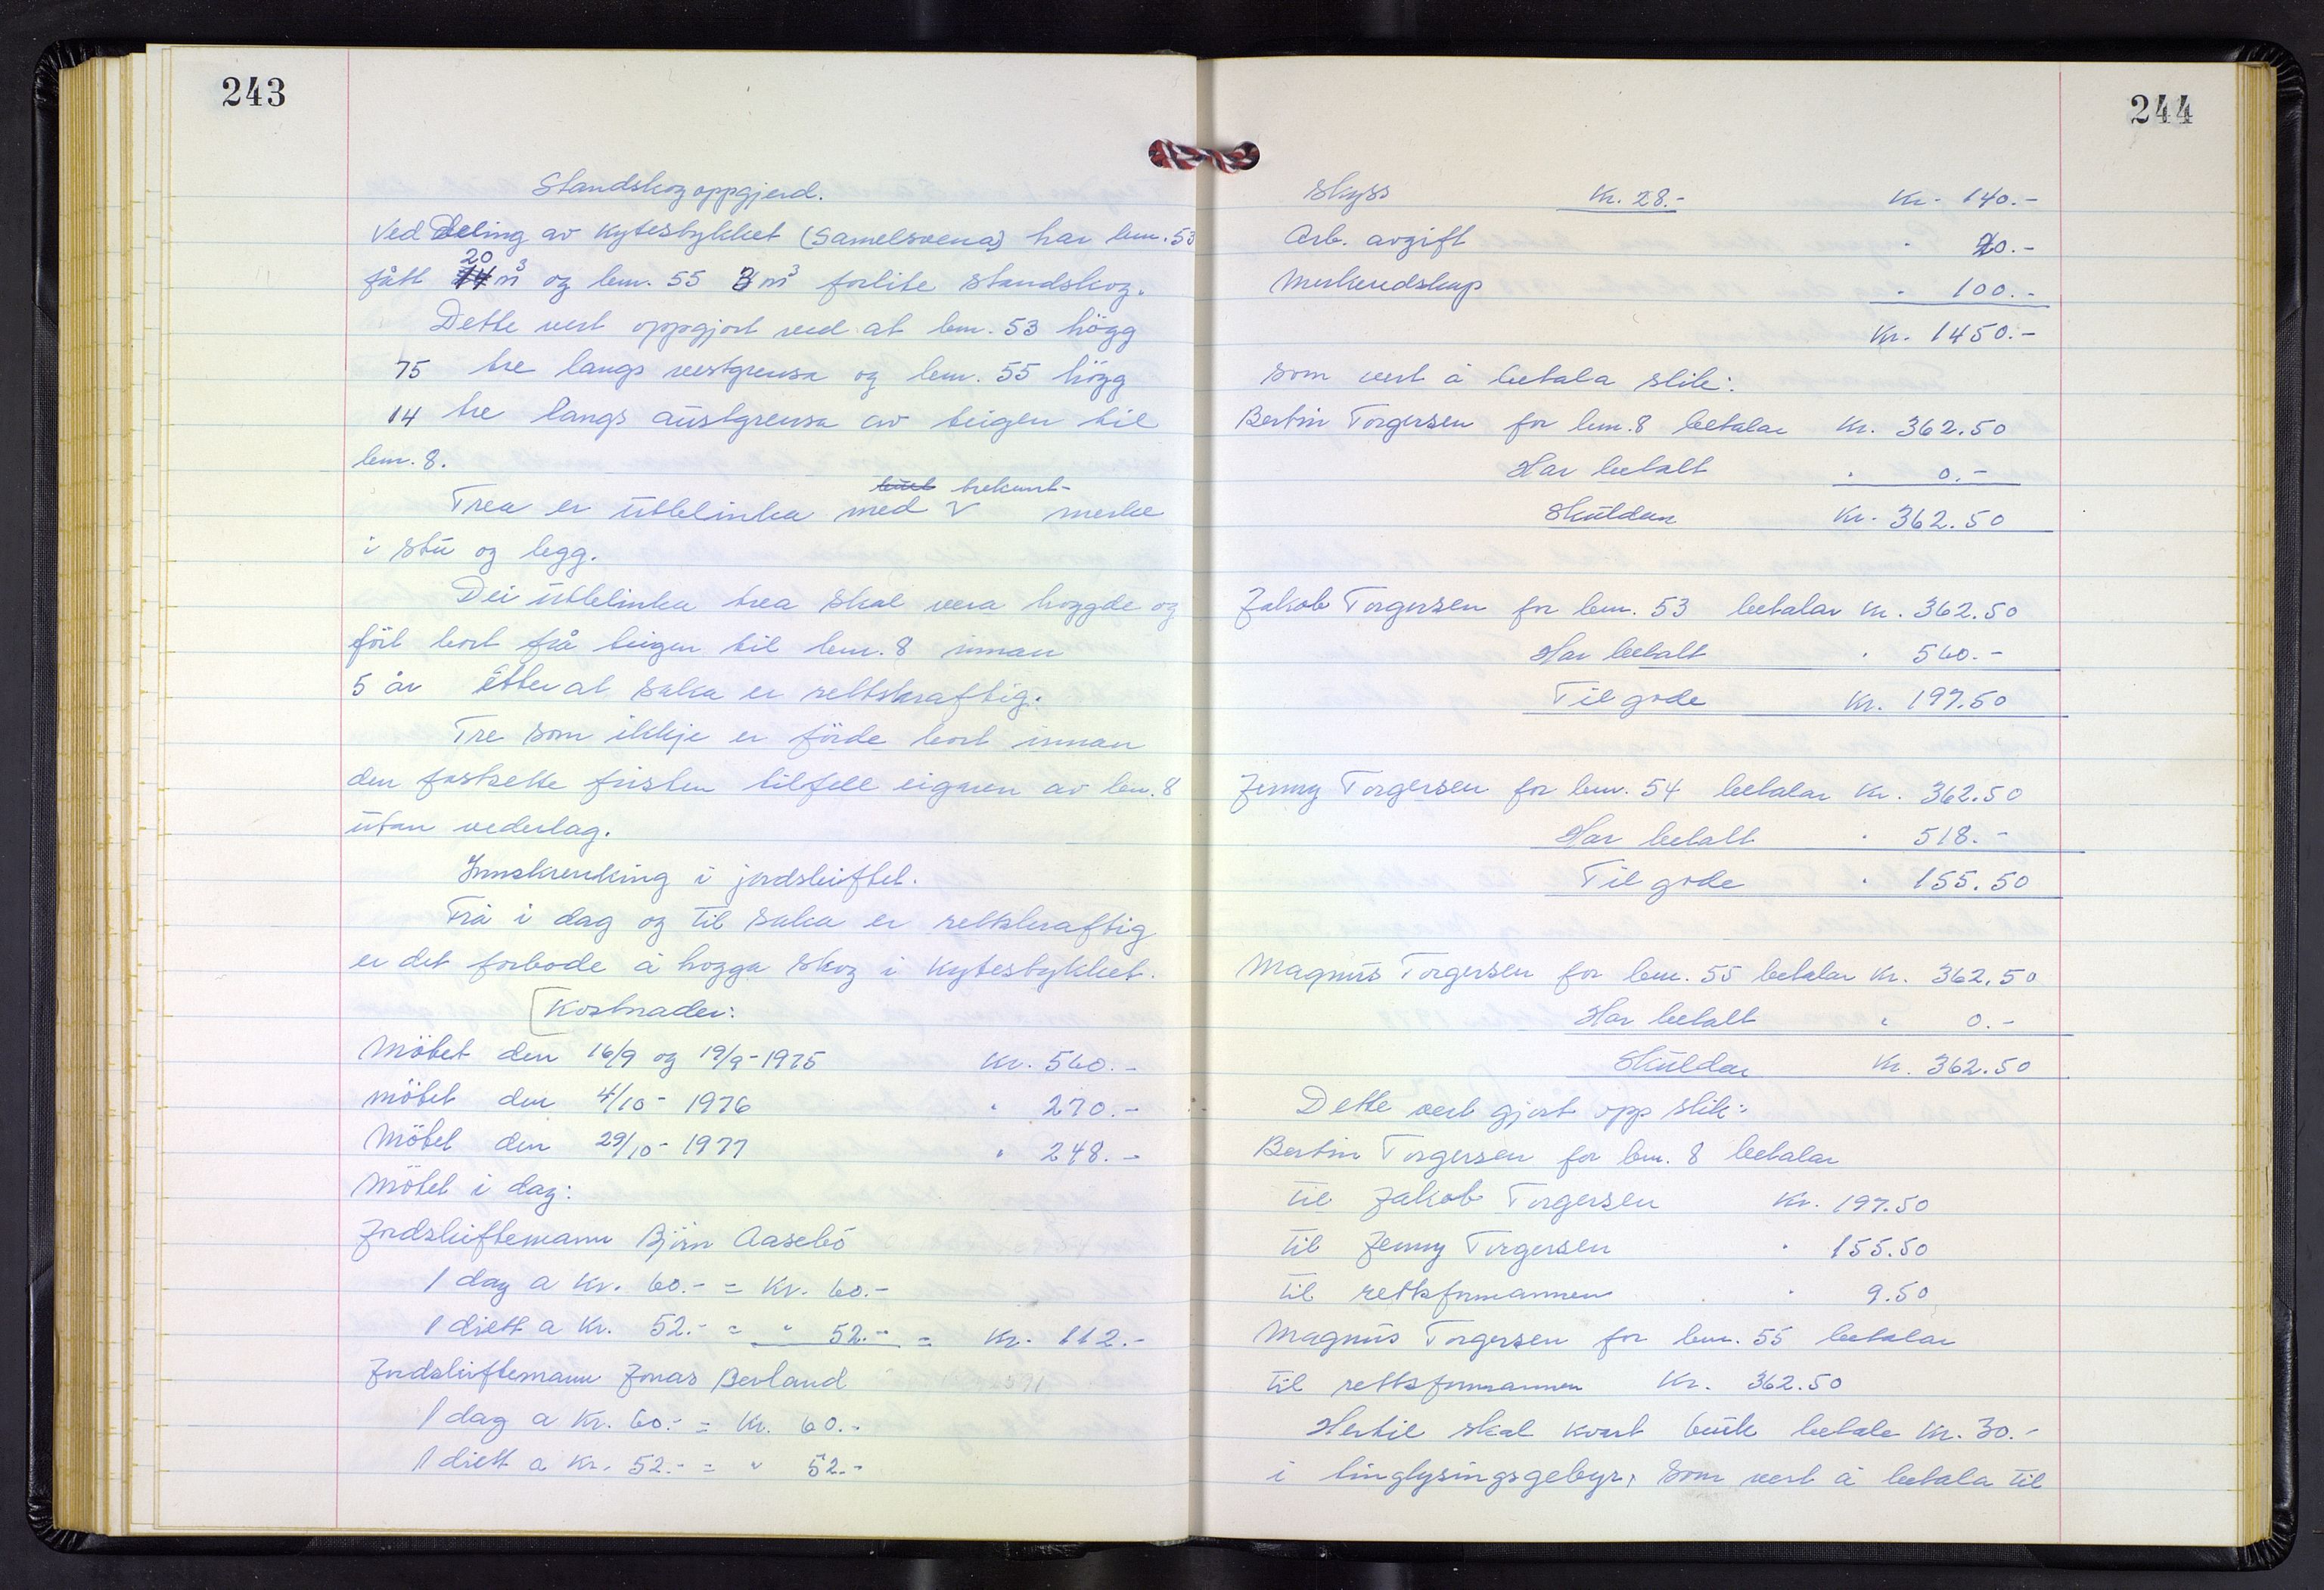 243
Standskogoppgjerd.
Ved Deling av Kytestykket (Samelsvena) har bnr. 53
20
fått 14 m³ og bnr. 55 8 m³ forlite standskog.
Dette vert oppgjort ved at bnr. 53 högg
75 tre langs vestgrensa og bnr. 55 högg
14 tre langs austgrensa av teigen til
bnr. 8.
trekant-
Trea er utblinka med V merke
i stu og legg.
Dei utblinka trea skal vera hogde og
fört bort frå teigen til bnr. 8 innan
5 år etter at saka er rettskraftig.
Tre som ikkje er förde bort innan
den fastsette fristen tilfell eigaren av bnr. 8
utan vederlag.
Innskrenking i jordskiftet.
Frå i dag og til saka er rettskraftig
er det forbode å hogga skog i Kytestykket.
Kostnader:
Möbet den 16/9 og 19/9-1975 Kr. 560.-
möbet den 4/10-1976 " 270.-
Möbet den 29/10-1977 " 248.-
Möbet i dag:
Jordskiftemann Björn Aasebö
1 dag a Kr. 60.- = Kr. 60.-
1 diett a Kr. 52.- = " 52.- = Kr. 112.-
Jordskiftemann Jonas Berland
1 dag a Kr. 60.- = Kr. 60.-
1 diett a Kr. 52.- = " 52.-
244
Skyss Kr. 28.- Kr. 140.-
Arb. avgift " 20.-
Merkeredskap " 100.-
Kr. 1450.-
som vert å betala slik:
Bertin Torgersen for bnr. 8 betalar Kr. 362.50
Har betalt " 0.-
Skuldar Kr. 362.50
Jakob Torgersen for bnr. 53 betalar Kr. 362.50
Har betalt " 560.-
Til gode Kr. 197.50
Jenny Torgersen for bnr. 54 betalar Kr. 362.50
Har betalt " 518.-
Til gode " 155.50
Magnus Torgersen for bnr. 55 betalar Kr. 362.50
Har betalt " 0.-
Skuldar Kr. 362.50
Dette vert gjort opp slik:
Bertin Torgersen for bnr. 8 betalar
til Jakob Torgersen Kr. 197.50
til Jenny Torgersen " 155.50
til rettsformannen " 9.50
Magnus Torgersen for bnr. 55 betalar
til rettsformannen Kr. 362.50
Hertil skal kvart bruk betale Kr. 30.-
i tinglysingsgebyr, som vert å betala til